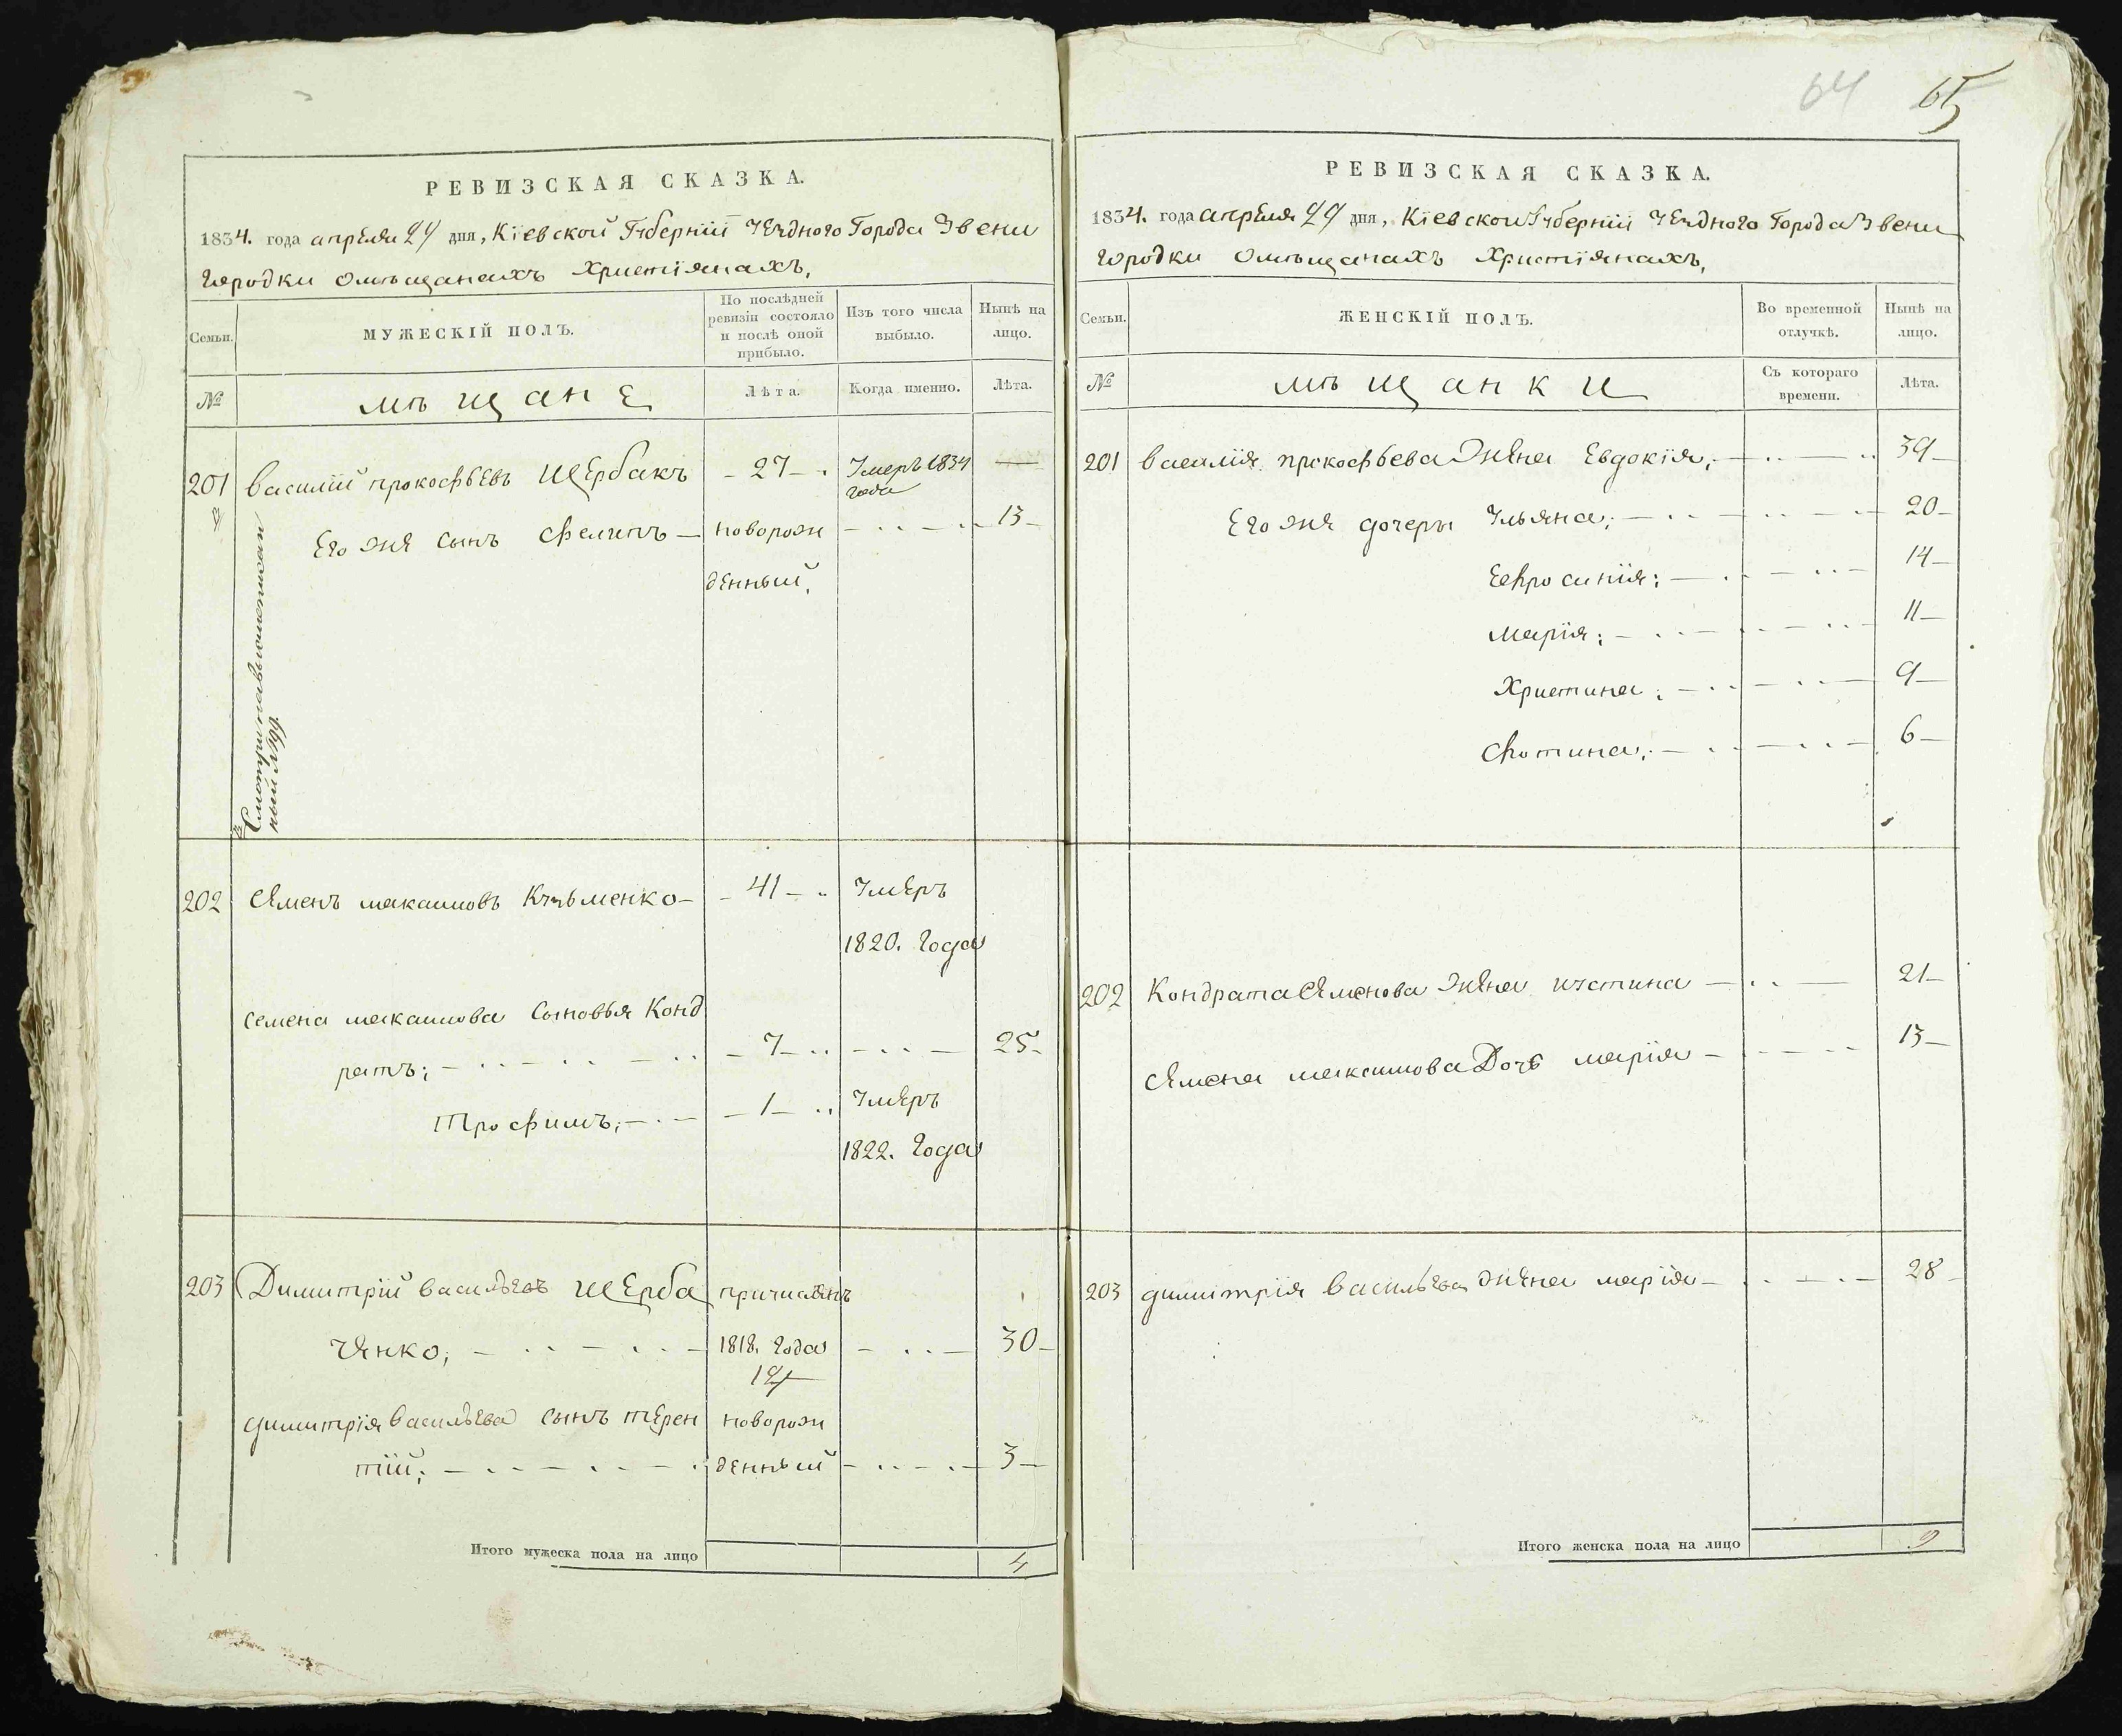 64 65
РЕВИЗСКАЯ СКАЗКА.
1834. года апреля 24 дня, Кіевской Губерніи Уезднаго Города Звени
городки омѣщанахъ Христіянахъ,
Семьи.
МУЖЕСКІЙ ПОЛЪ.
По послѣдней
ревизіи состояло
и послѣ оной
прибыло.
Изъ того числа
выбыло.
Нынѣ на
лицо.
№
мѣщане
Лѣта.
Когда именно.
Лѣта.
201 Василій прокофьевъ Щербакъ — 27 — Умеръ 1834 —
года
Его же сынъ Филипъ — новорож — 13 —
денный,
Смотри навыше
ный № 199.
202 Семенъ макаимовъ Кузьменко — 41 — Умеръ
1820. Года
Семена макаимова Сыновья Конд
ратъ; — 7 — 25 —
Трофимъ; — 1 — Умеръ
1822. Года
203 Димитрій васильевъ Щерба причисленъ
ченко; — 1818. Года — 30 —
14
димитрія васильева сынъ терен новорож
тій; — денный — 3 —
Итого мужеска пола на лицо 4
РЕВИЗСКАЯ СКАЗКА.
1834. года апреля 24 дня, Кіевской Губерніи Уезднаго Города Звени
городки омѣщанахъ Христіянахъ,
Семьи.
ЖЕНСКІЙ ПОЛЪ.
Во временной
отлучкѣ.
Нынѣ на
лицо.
№
мѣщанки
Съ котораго
времени.
Лѣта.
201 василія прокофьева Жена Евдокія; — 39 —
Его же дочеры Ульяна; — 20 —
Ефросинія; — 14 —
марія; — 11 —
Христина; — 9 —
Фотина; — 6 —
202 Кондрата Семенова Жена иустина — 21 —
Семена макаимова Дочь марія — 13 —
203 димитрія васильева жена марія — 28 —
Итого женска пола на лицо 9